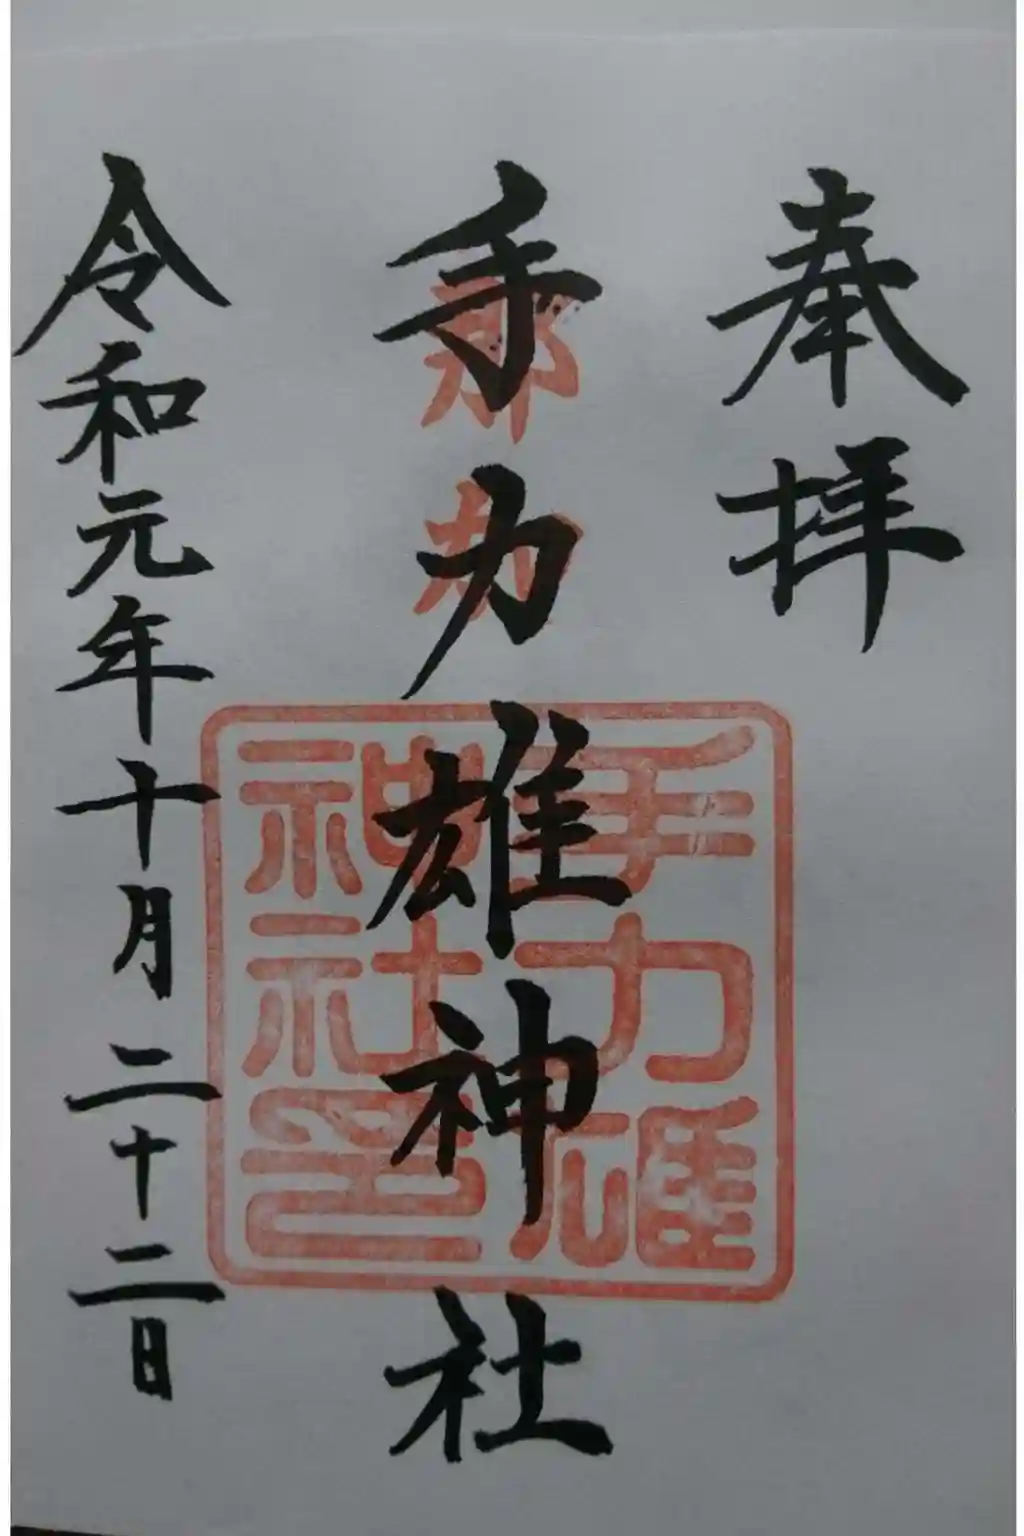 奉拝
手力雄神社
那加
手力雄
神社印
令和元年十月二十二日